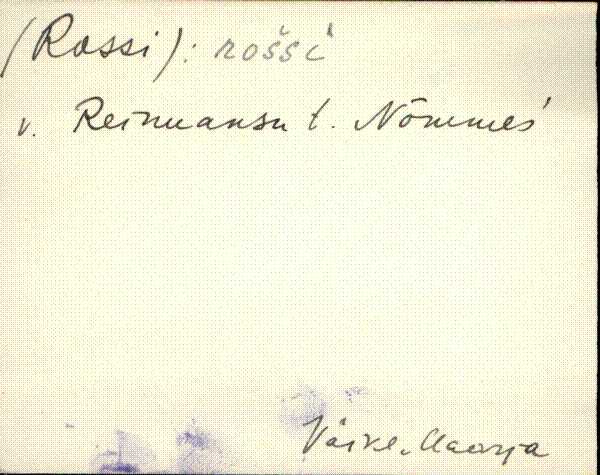 (Rossi): rošši
v. Reinmansu t. Nõmmes
Väike-Maarja